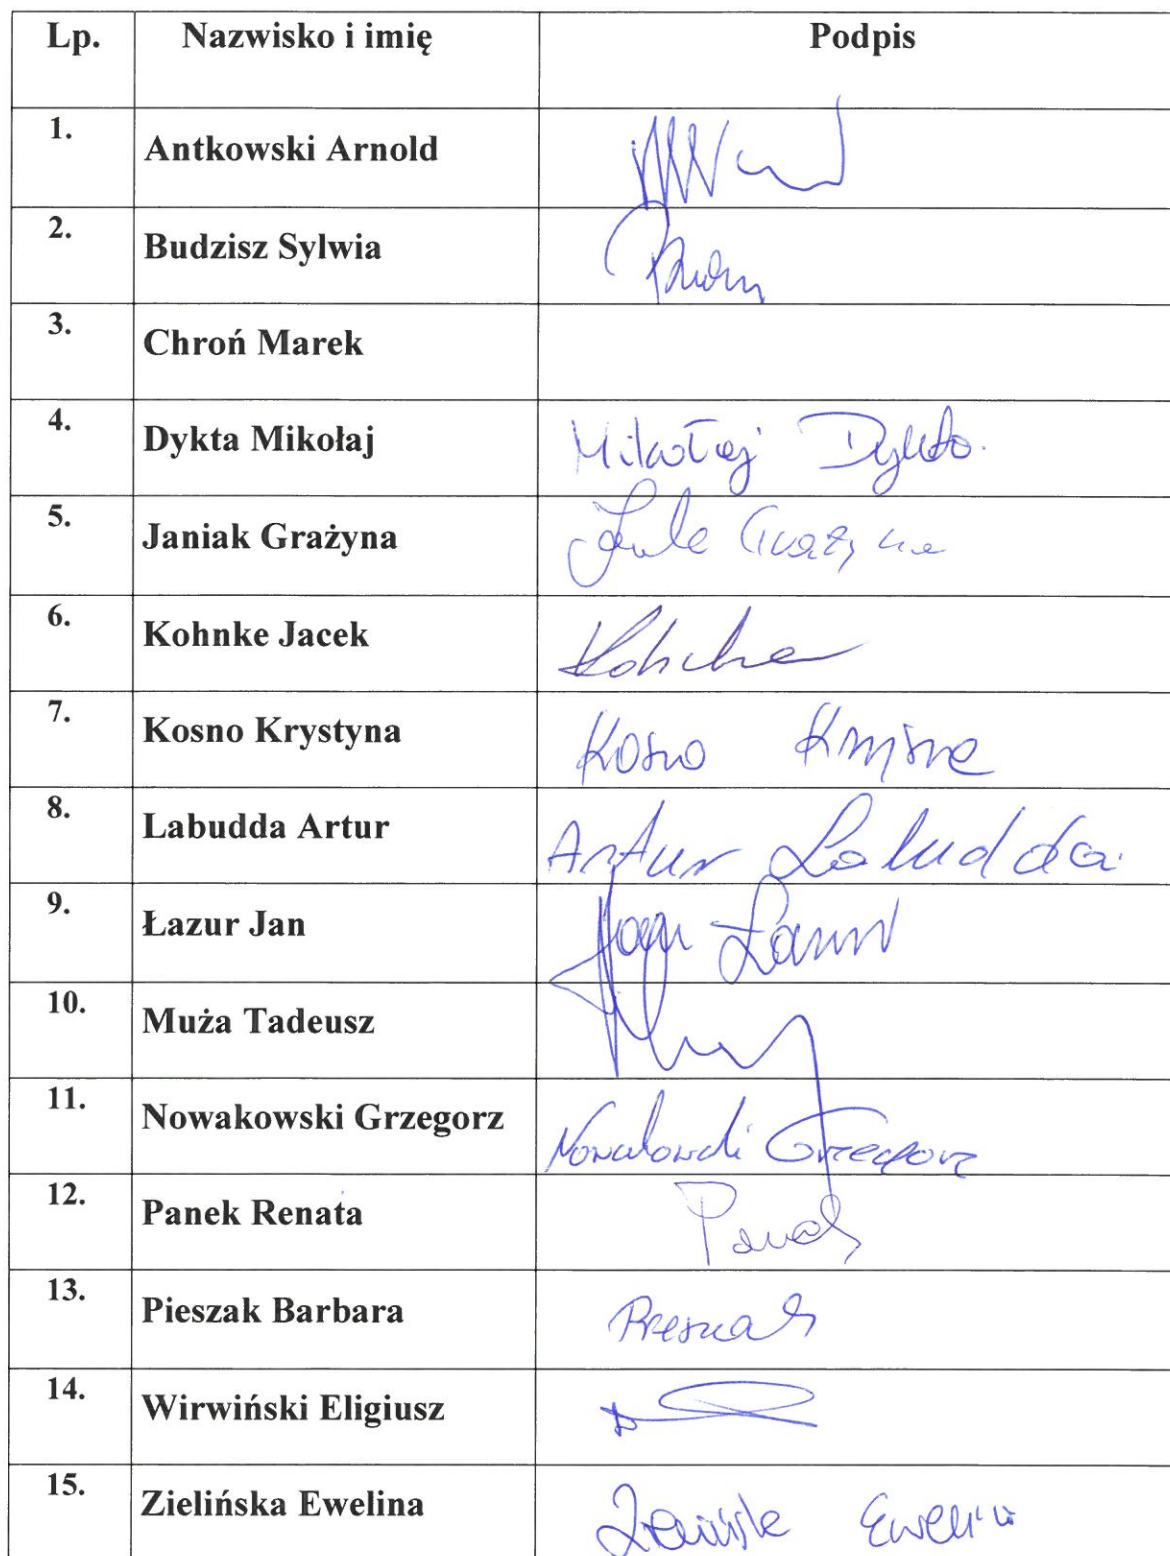 Lp. Nazwisko i imię Podpis
1. Antkowski Arnold
2. Budzisz Sylwia
3. Chroń Marek
4. Dykta Mikołaj Mikołaj Dykta
5. Janiak Grażyna Grażyna
6. Kohnke Jacek Kohnke
7. Kosno Krystyna Kosno Krystyna
8. Labudda Artur Artur Labudda
9. Łazur Jan Jan Łazur
10. Muża Tadeusz
11. Nowakowski Grzegorz Nowakowski Grzegorz
12. Panek Renata Panek
13. Pieszak Barbara Pieszak
14. Wirwiński Eligiusz
15. Zielińska Ewelina Zielińska Ewelina